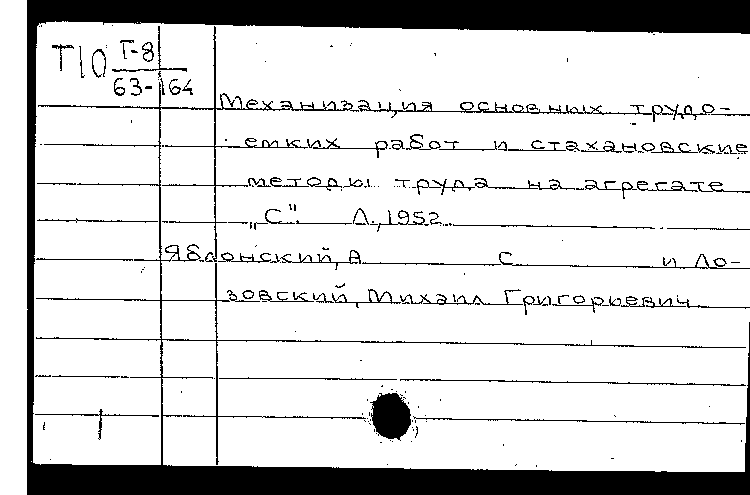 Т10 Г-8
63-164
Механизация основных трудо-
емких работ и стахановские
методы труда на агрегате
„С". Л., 1952.
Яблонский, А С и Ло-
зовский, Михаил Григорьевич